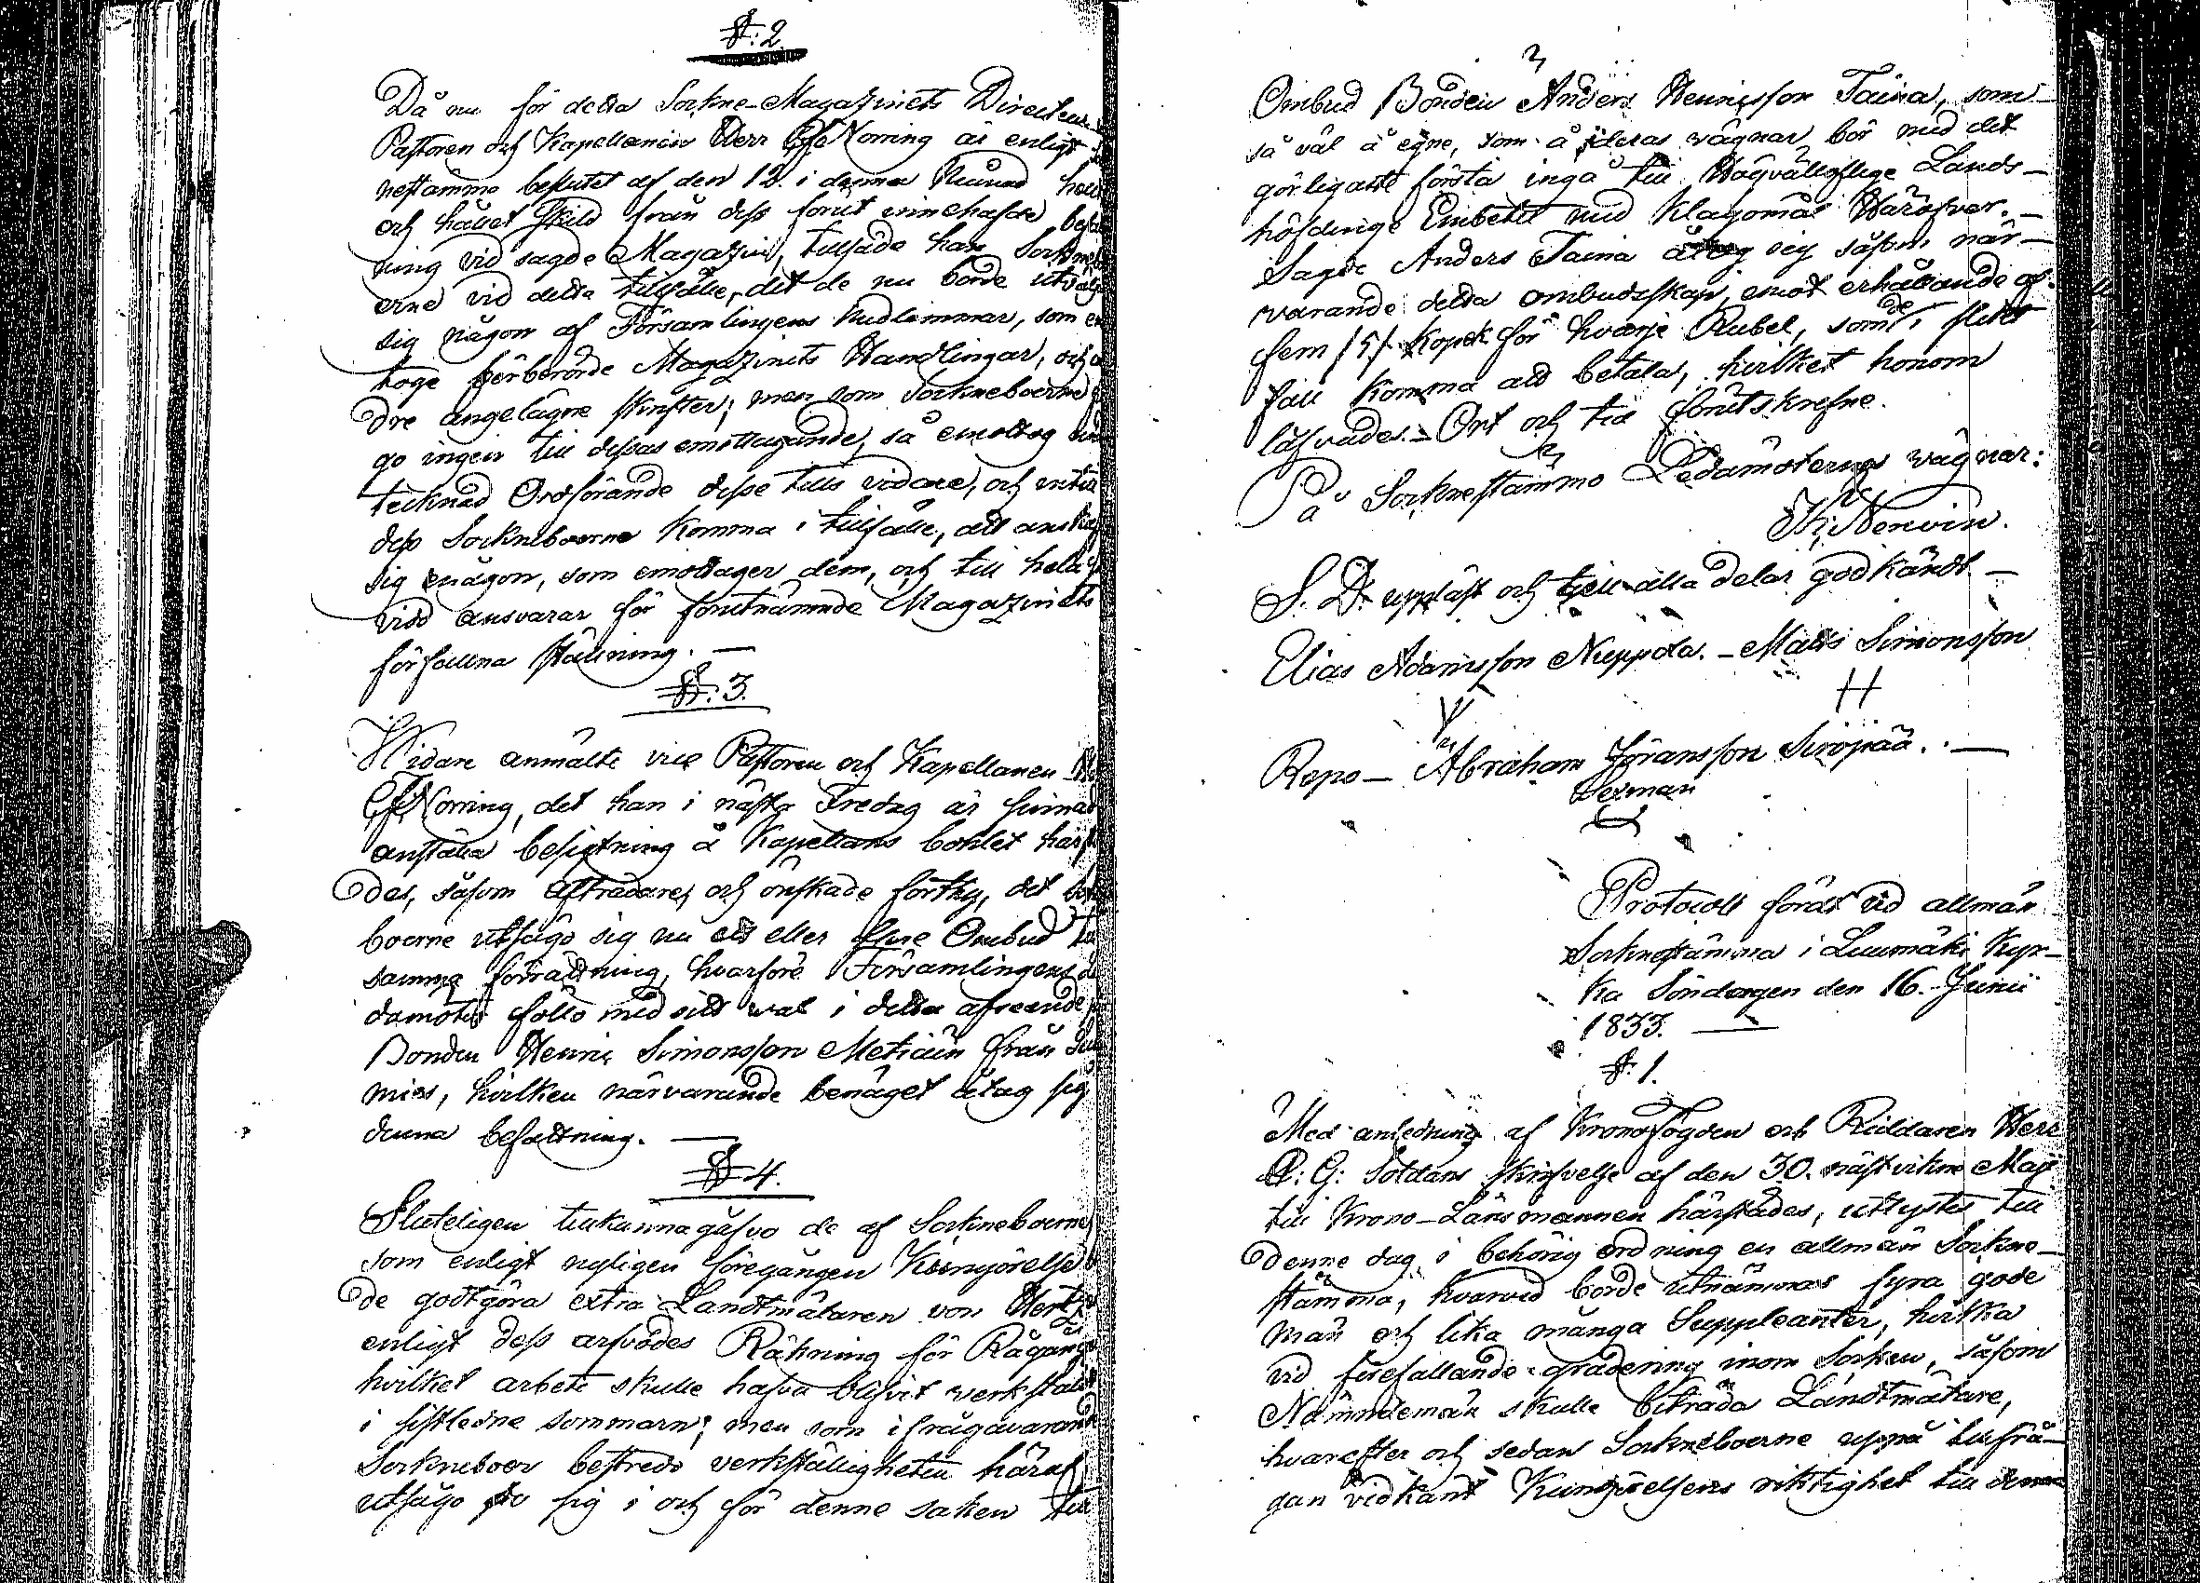 §: 2.
Då nu för detta Sockne-Magazinets Directeur
Pastoren och Kapellanen Herr Norring är enligt
nestämmo beslutet af den 12. i denna Månad
och hållet skild från dess förut innehafde
ning vid sagde Magazin, tillsade han
erne vid detta tillfälle, det de nu borde utvälja
sig någon af Församlingens medlemmar, som
toge förberörde Magazinets Handlingar, och
dre angelägne skrifter; men som Sockneboerne
go ingen till dessas emottagande, så emottog
tecknad Ordförande desse tills vidare, och intill
dess Sockneboerne komma i tillfälle, att
sig någon, som emottager dem, och till hela
vidd ansvarar för förutnämnde Magazinets
förfallna ställning. —
§: 3.
Widare anmälte vice Pastoren och Kapellanen
Norring, det han i nästa Fredag är sinnad
anställa besigtning å Kapellans bohlet
des, såsom afträdare, och önskade förthy, det
boerne utsågo sig nu ett eller flere Ombud
samma förrättning, hvarföre Församlingens
damöter föllo med sitt wal i detta afseende
Bonden Henric Simonsson Metiäin från
mies, hvilken närvarande benäget åtag sig
denna befattning. —
§ 4.
Sluteligen tillkännagåfvo de af Sockneboerne,
som enligt nyligen föregången Kungörelse
de godtgöra extra Landtmätaren von
enligt dess arfvodes Räkning för Rågång
hvilket arbete skulle hafva blifvit verkstäldt
i sistledne sommarn; men som ifrågavarande
Sockneboer bestredo verkställigheten häraf
utsågo de sig i och för denne saken till
Ombud Bonden Anders Henricsson Taina, som
så väl å egne, som å deras vägnar bör med det
görligaste första ingå till Högvälloflige Lands-
höfdinge Embetet med Klagomål Häröfver. —
Sagde Anders Taina åtog sig såsom när-
varande detta ombudsskap, emot erhållande af
fem /5/ Kopek för hvarje Rubel, som de i slikt
fall komma att betala, hvilket honom
låfvades. – Ort och tid förutskrefne.
På Socknestämmo Ledamöternes vägnar:
Nervin.
S. D. uppläst och till alla delar godkändt —
Elias Adamsson Nuppola. – Matts Simonsson
H
Repo — Abraham Jöransson Siröjää. . —
Sexman
Protocoll fördt vid allmän
Socknestämma i Luumäki Kyr-
ka Söndagen den 16. Junii
1833. —
§: 1.
Med anledning af KronoFogden och Riddaren Herr
A: G: Soldans skrifvelse af den 30. näst vikne Maji
till Krono-Länsmannen härstädes, utlystes till
denne dag i behörig ordning en allmän Sockne-
stämma, hvarvid borde utnämnas fyra gode
män och lika många Suppleanter, hvilka
vid förefallande gradering inom Socken, såsom
Nämndemän skulle biträda Landtmätare,
hvarefter och sedan Sockneboerne uppå tillfrå-
gan vidkändt Kungörelsens riktighet till